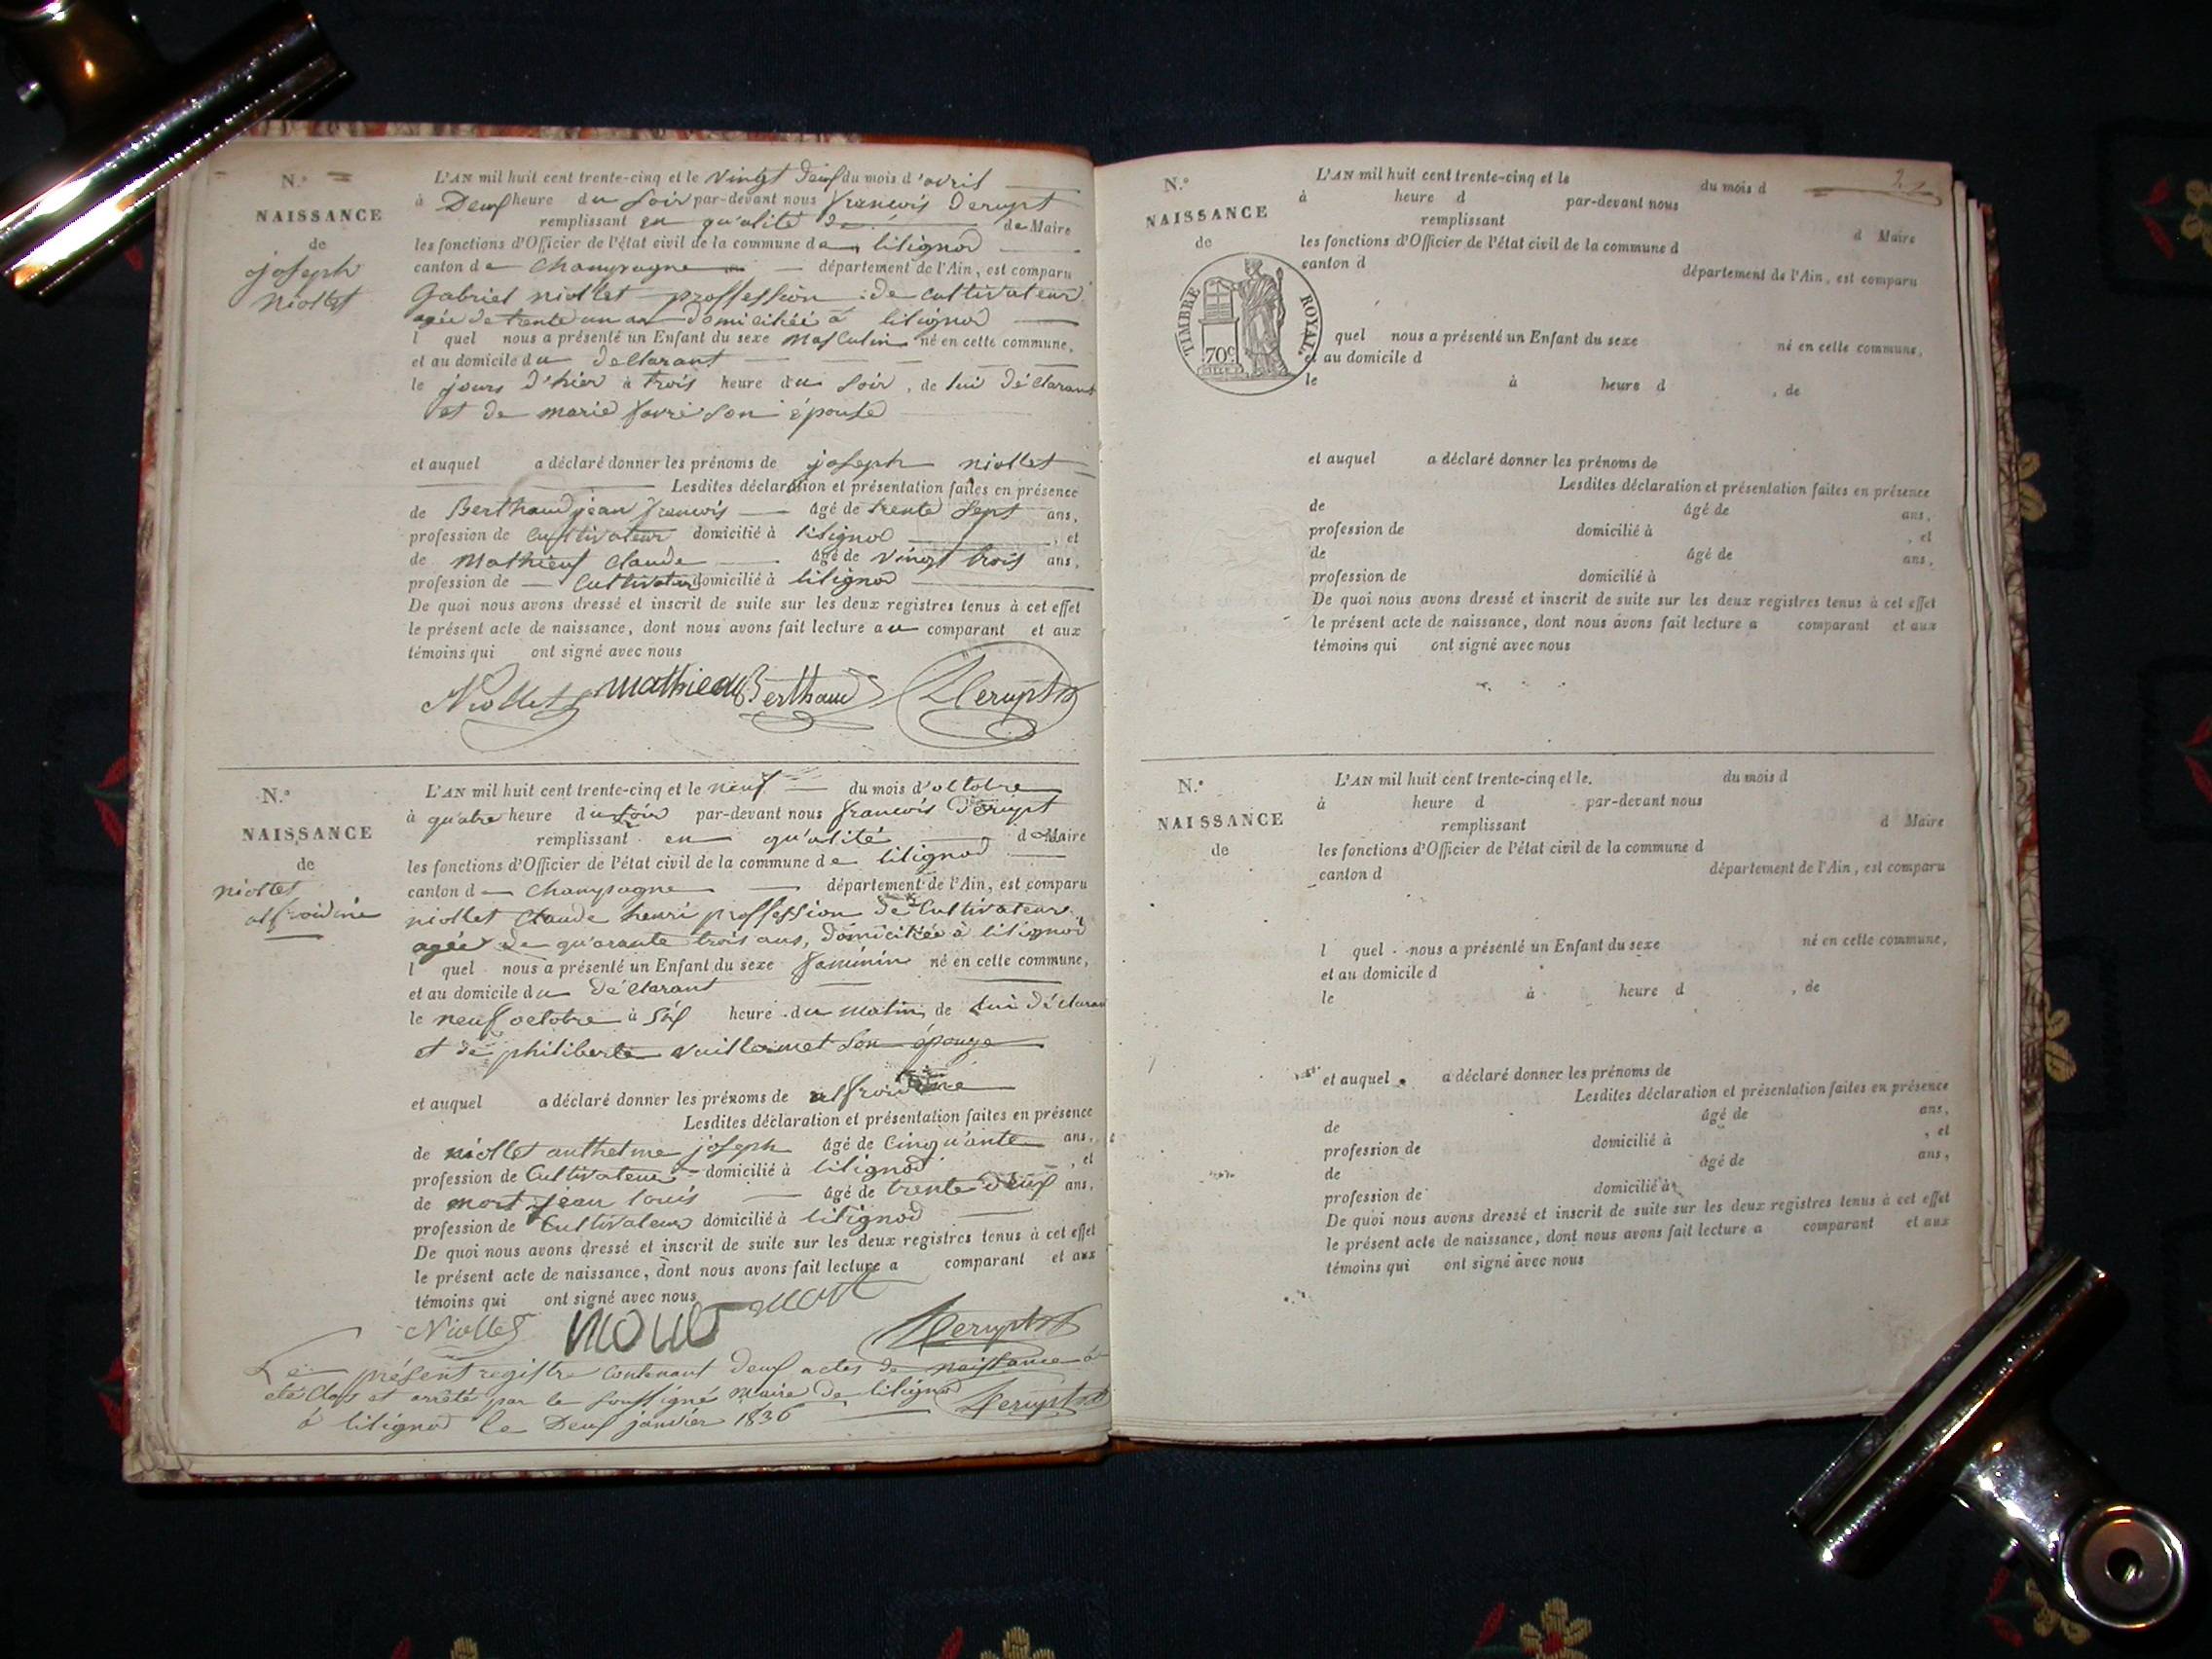 N.º
NAISSANCE
de
joseph
niollet
L'AN mil huit cent trente-cinq et le vingt deux du mois d'avril
à Deux heure du soir par-devant nous francois Derupt
remplissant en qu'alité de de Maire
les fonctions d'Officier de l'état civil de la commune de litignod
canton de Champagne département de l'Ain, est comparu
Gabriel niollet proffession de cultivateur
agée de trente un an domicilièé à litignod
l quel nous a présenté un Enfant du sexe Masculin né en cette commune,
et au domicile du declarant
le jours d'hier à trois heure du soir, de lui déclarant
et de marie favre son épouse
et auquel a déclaré donner les prénoms de joseph niollet
Lesdites déclaration et présentation faites en présence
de Berthaud jean francois âgé de trente sept ans,
profession de cultivateur domicilié à litignod, et
de Mathieux Claude âgé de vingt trois ans,
profession de Cultivateur domicilié à litignod
De quoi nous avons dressé et inscrit de suite sur les deux registres tenus à cet effet
le présent acte de naissance, dont nous avons fait lecture au comparant et aux
témoins qui ont signé avec nous
Niollet mathieux Berthaud Derupt
N.º
NAISSANCE
de
niollet
L'AN mil huit cent trente-cinq et le neuf du mois d'octobre
à qu'atre heure du soir par-devant nous francois Derupt
remplissant en qu'alité de Maire
les fonctions d'Officier de l'état civil de la commune de litignod
canton de Champagne département de l'Ain, est comparu
niollet Claude henri proffession de Cultivateur
agée de qu'arante trois ans, domicilièé à litignod
l quel nous a présenté un Enfant du sexe faminin né en cette commune,
et au domicile du déclarant
le neuf octobre à six heure du matin, de lui déclarant
et de philiberte vuillermet son épouse
et auquel a déclaré donner les prénoms de
Lesdites déclaration et présentation faites en présence
de niollet anthelme joseph âgé de Cinqu'ante ans,
profession de Cultivateur domicilié à litignod, et
de mort jean louis âgé de trente deux ans,
profession de Cultivateur domicilié à litignod
De quoi nous avons dressé et inscrit de suite sur les deux registres tenus à cet effet
le présent acte de naissance, dont nous avons fait lecture a comparant et aux
témoins qui ont signé avec nous
Niollet mort Derupt
Le présent registre contenant deux actes de naissance à
été Clos et arrêté par le soussigné Maire de litignod Derupt
à litignod le Deux janvier 1836
N.º
NAISSANCE
de
L'AN mil huit cent trente-cinq et le du mois d
à heure d par-devant nous
remplissant d Maire
les fonctions d'Officier de l'état civil de la commune d
canton d département de l'Ain, est comparu
TIMBRE ROYAL.
70c
l quel nous a présenté un Enfant du sexe né en cette commune,
et au domicile d
le à heure d , de
et auquel a déclaré donner les prénoms de
Lesdites déclaration et présentation faites en présence
de âgé de ans,
profession de domicilié à , et
de âgé de ans,
profession de domicilié à
De quoi nous avons dressé et inscrit de suite sur les deux registres tenus à cet effet
le présent acte de naissance, dont nous avons fait lecture a comparant et aux
témoins qui ont signé avec nous
N.º
NAISSANCE
de
L'AN mil huit cent trente-cinq et le. du mois d
à heure d par-devant nous
remplissant d Maire
les fonctions d'Officier de l'état civil de la commune d
canton d département de l'Ain, est comparu
l quel nous a présenté un Enfant du sexe né en cette commune,
et au domicile d
le à heure d , de
et auquel a déclaré donner les prénoms de
Lesdites déclaration et présentation faites en présence
de âgé de ans,
profession de domicilié à , et
de âgé de ans,
profession de domicilié à
De quoi nous avons dressé et inscrit de suite sur les deux registres tenus à cet effet
le présent acte de naissance, dont nous avons fait lecture a comparant et aux
témoins qui ont signé avec nous